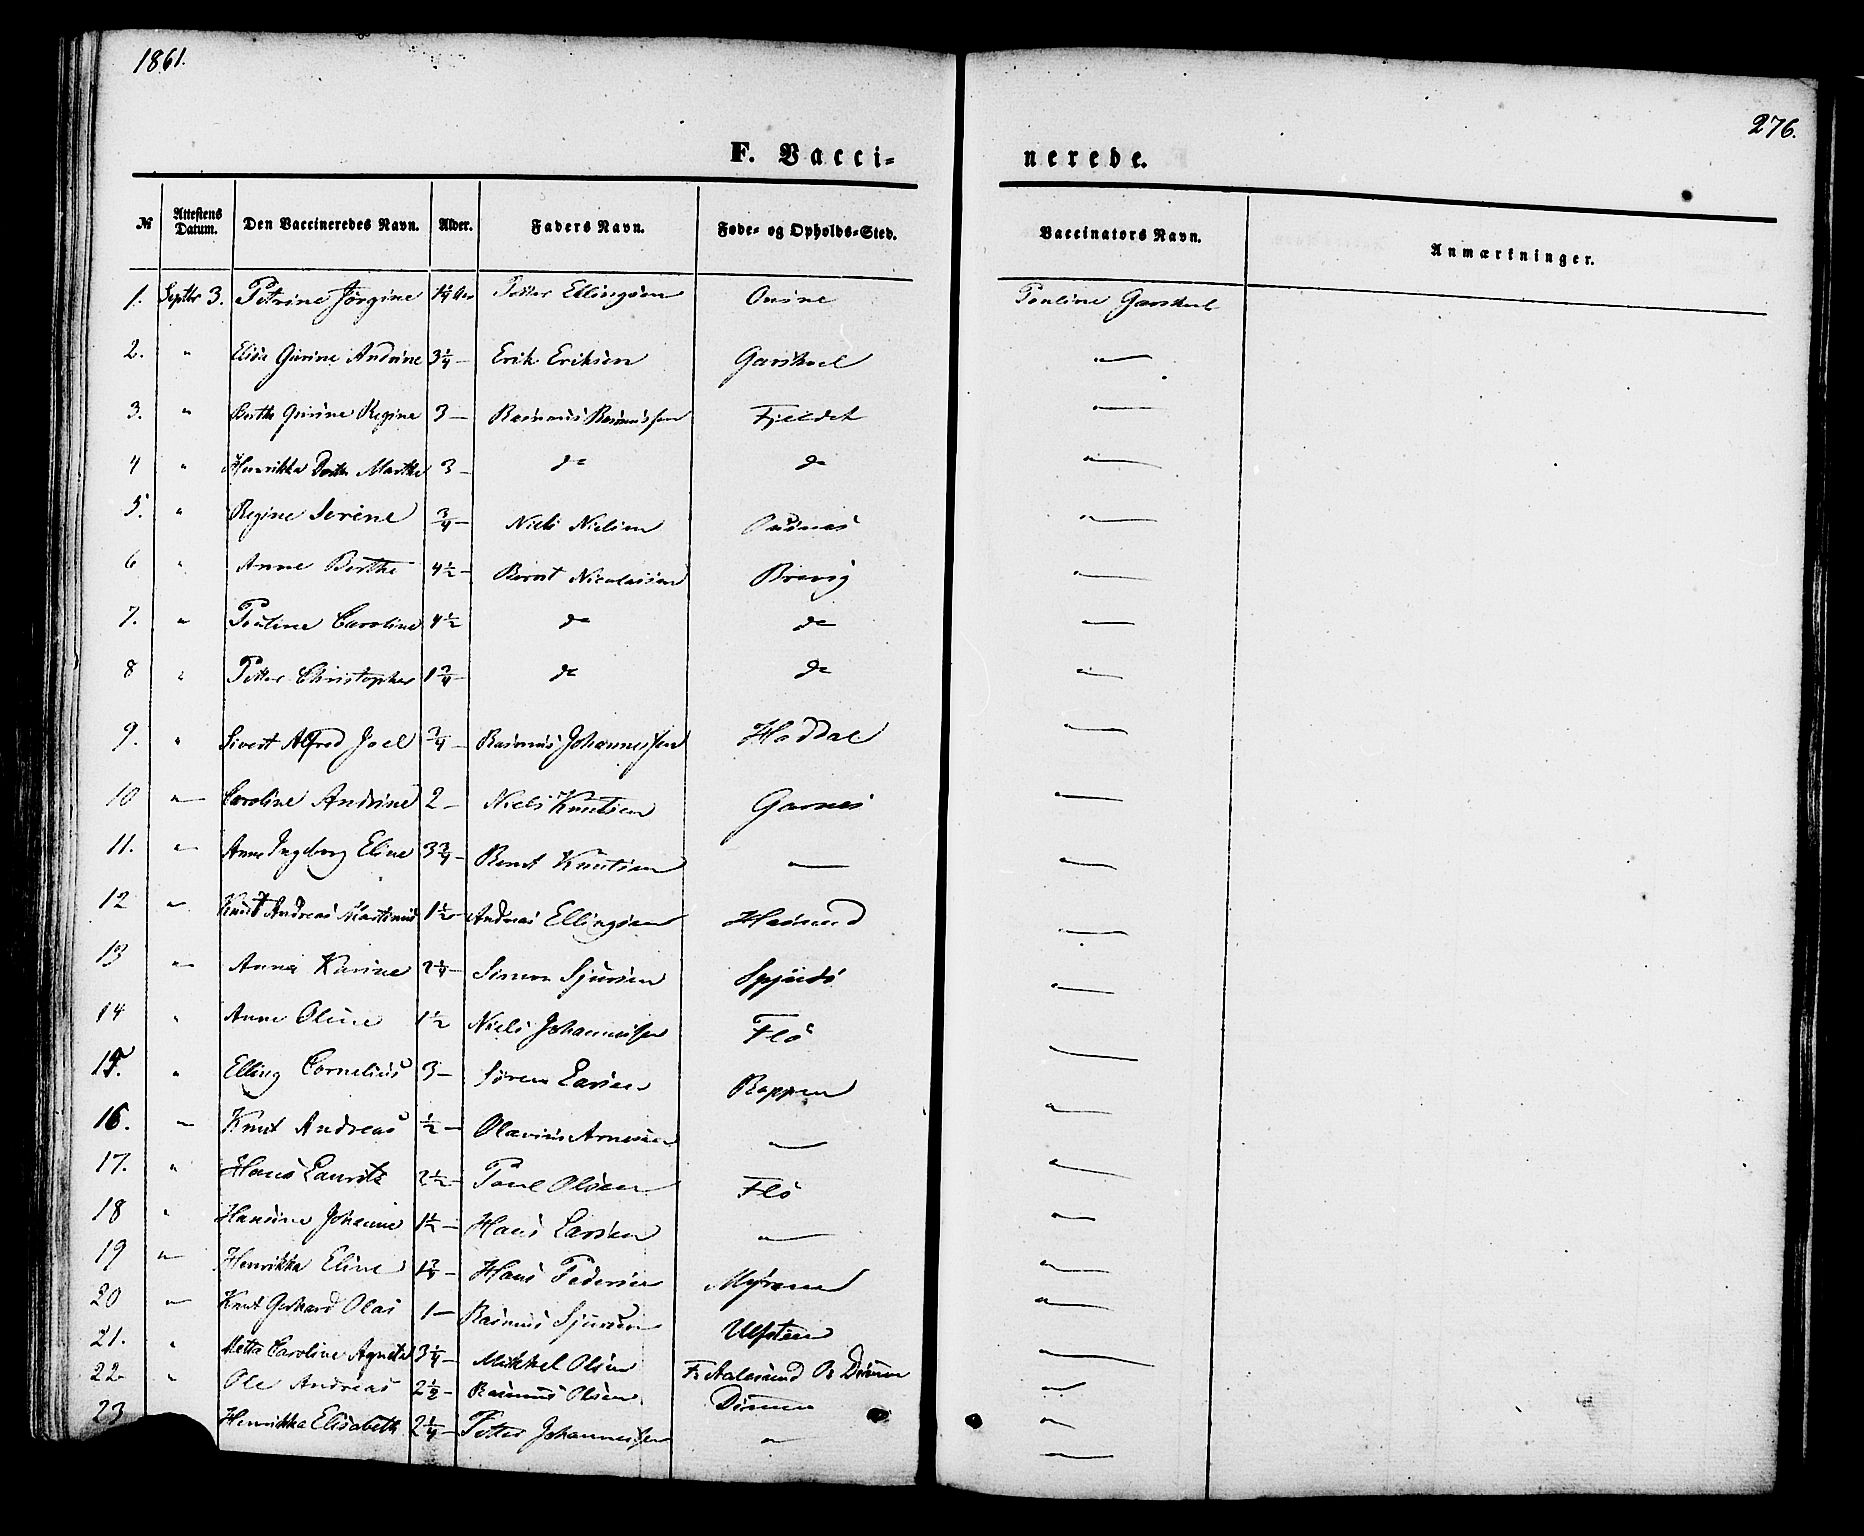 1861.
276.
F. Vacci-
nerede.
№ Attestens Datum. Den Vaccineredes Navn. Alder. Faders Navn. Føde- og Opholds-Sted. Vaccinators Navn. Anmærkninger.
1. Septbr 3. Petrine Jørgine 1 1/4 Aar Petter Ellingsen Pauline Garshoel
2. " Elise Gurine Andrine 3 1/4 – Erik Eriksen Garshoel "
3. " Berthe Gurine Regine 3 – Rasmus Rasmussen Fjeldet "
4 " Henrikka Dorthe Marthe 3 – do do "
5. " Regine Serine 3/4 – Niels Nielsen "
6 " Anne Berthe 4 1/2 – Bernt Nicolaisen Brevig "
7. " Pauline Caroline 4 1/2 do do "
8 " Petter Christopher 1 3/4 – do do "
9. " Sivert Alfred Joel 3/4 – Rasmus Johannessen Haddal "
10 " Caroline Andrine 2 – Niels Knutsen Garnes "
11. " Anne Ingeborg Eline 3 3/4 – Bernt Knutsen " "
12 " Knut Andreas Martinus 1 1/2 – Andreas Ellingsen Hasund "
13 " Anna Karine 2 1/4 – Simon Sjursen "
14 " Anne Oline 1 1/2 Niels Johannessen Flø "
15. " Elling Cornelius 3 – Søren Larsen Røppen "
16. " Knut Andreas 1/2 – Olavius Arnesen " "
17. " Hans Lauritz 2 1/2 – Paul Olsen Flø "
18 " Hansine Johanne 1 1/2 – Hans Larsen " "
19 " Henrikka Eline 1 3/4 – Hans Pedersen Myrene "
20 " Knut Gerhard Olai 1 – Rasmus Sjursen Ulfsten "
21. " Mette Caroline Agnete 3 1/4 – Mikkel Olsen F. Aalesund O. Dimnen "
22 " Ole Andreas 2 1/2 – Rasmus Olsen Dimnen "
23 Henrikka Elisabeth 2 1/4 – Petter Johannessen " "